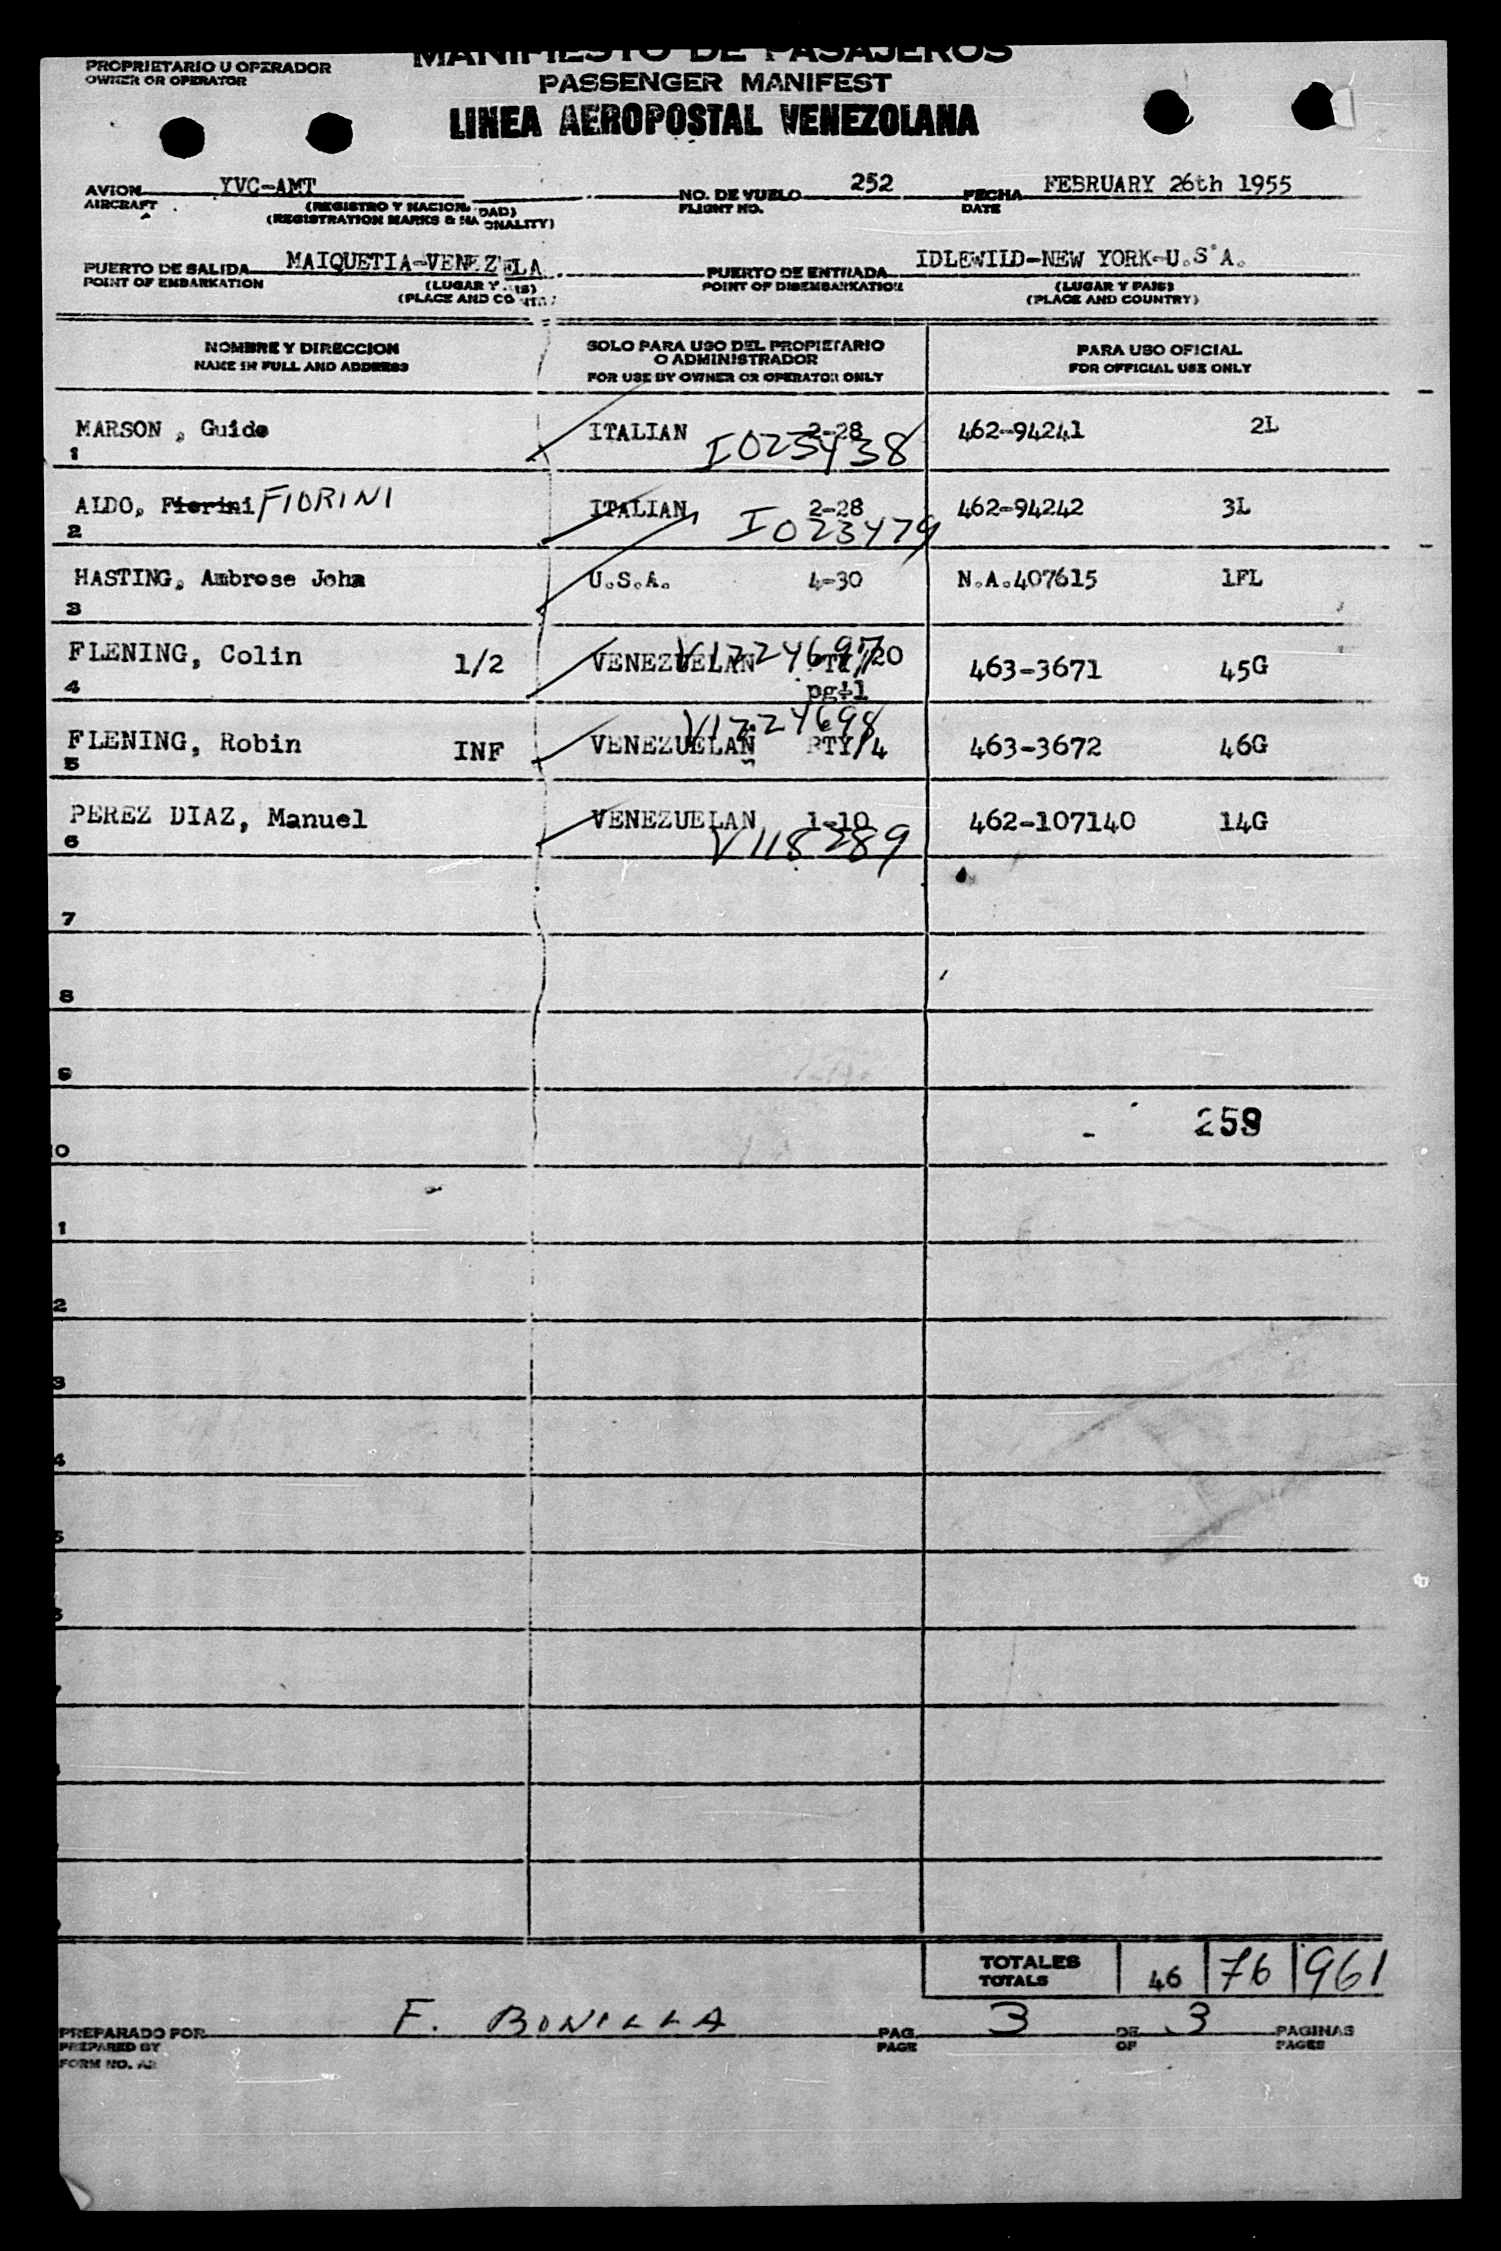 MANIFIESTO DE PASAJEROS
PROPRIETARIO U OPERADOR
OWNER OR OPERATOR
PASSENGER MANIFEST
LINEA AEROPOSTAL VENEZOLANA
AVION YVC-AMT NO. DE VUELO 252 FECHA FEBRUARY 26th 1955
AIRCRAFT FLIGHT NO. DATE
(REGISTRO Y NACION DAD)
(REGISTRATION MARKS & NA ONALITY)
PUERTO DE SALIDA MAIQUETIA-VENEZ'ELA PUERTO DE ENTRADA IDLEWILD-NEW YORK-U.S.A.
POINT OF EMBARKATION POINT OF DISEMBARKATION
(LUGAR Y (LUGAR Y PAIS)
(PLACE AND CO (PLACE AND COUNTRY)
NOMBRE Y DIRECCION
NAME IN FULL AND ADDRESS
SOLO PARA USO DEL PROPIETARIO
O ADMINISTRADOR
FOR USE BY OWNER OR OPERATOR ONLY
PARA USO OFICIAL
FOR OFFICIAL USE ONLY
MARSON , Guido ITALIAN 2-28 462-94241 2L
1 I023438
ALDO, Fiorini FIORINI ITALIAN 2-28 462-94242 3L
2 I023479
HASTING, Ambrose John U.S.A. 4-30 N.A.407615 1FL
3
V1224697
FLENING, Colin 1/2 VENEZUELAN /20 463-3671 45G
4 pg÷1
V1224698
FLENING, Robin INF VENEZUELAN PTY/4 463-3672 46G
5
PEREZ DIAZ, Manuel VENEZUELAN 1-10 462-107140 14G
6 V118289
7
8
9
259
0
1
2
3
4
5
TOTALES 46 76 961
TOTALS
PREPARADO POR F. BONILLA PAG. 3 DE 3 PAGINAS
PREPARED BY PAGE OF PAGES
FORM NO. A2